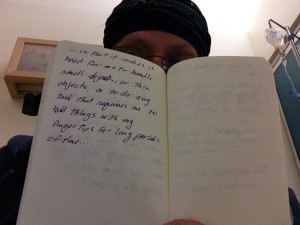 ... is that it makes it
hard for me to handle
small objects, or thin
objects, or to do any
task that requires me to
hold things with my
fingertips for long periods
of time...